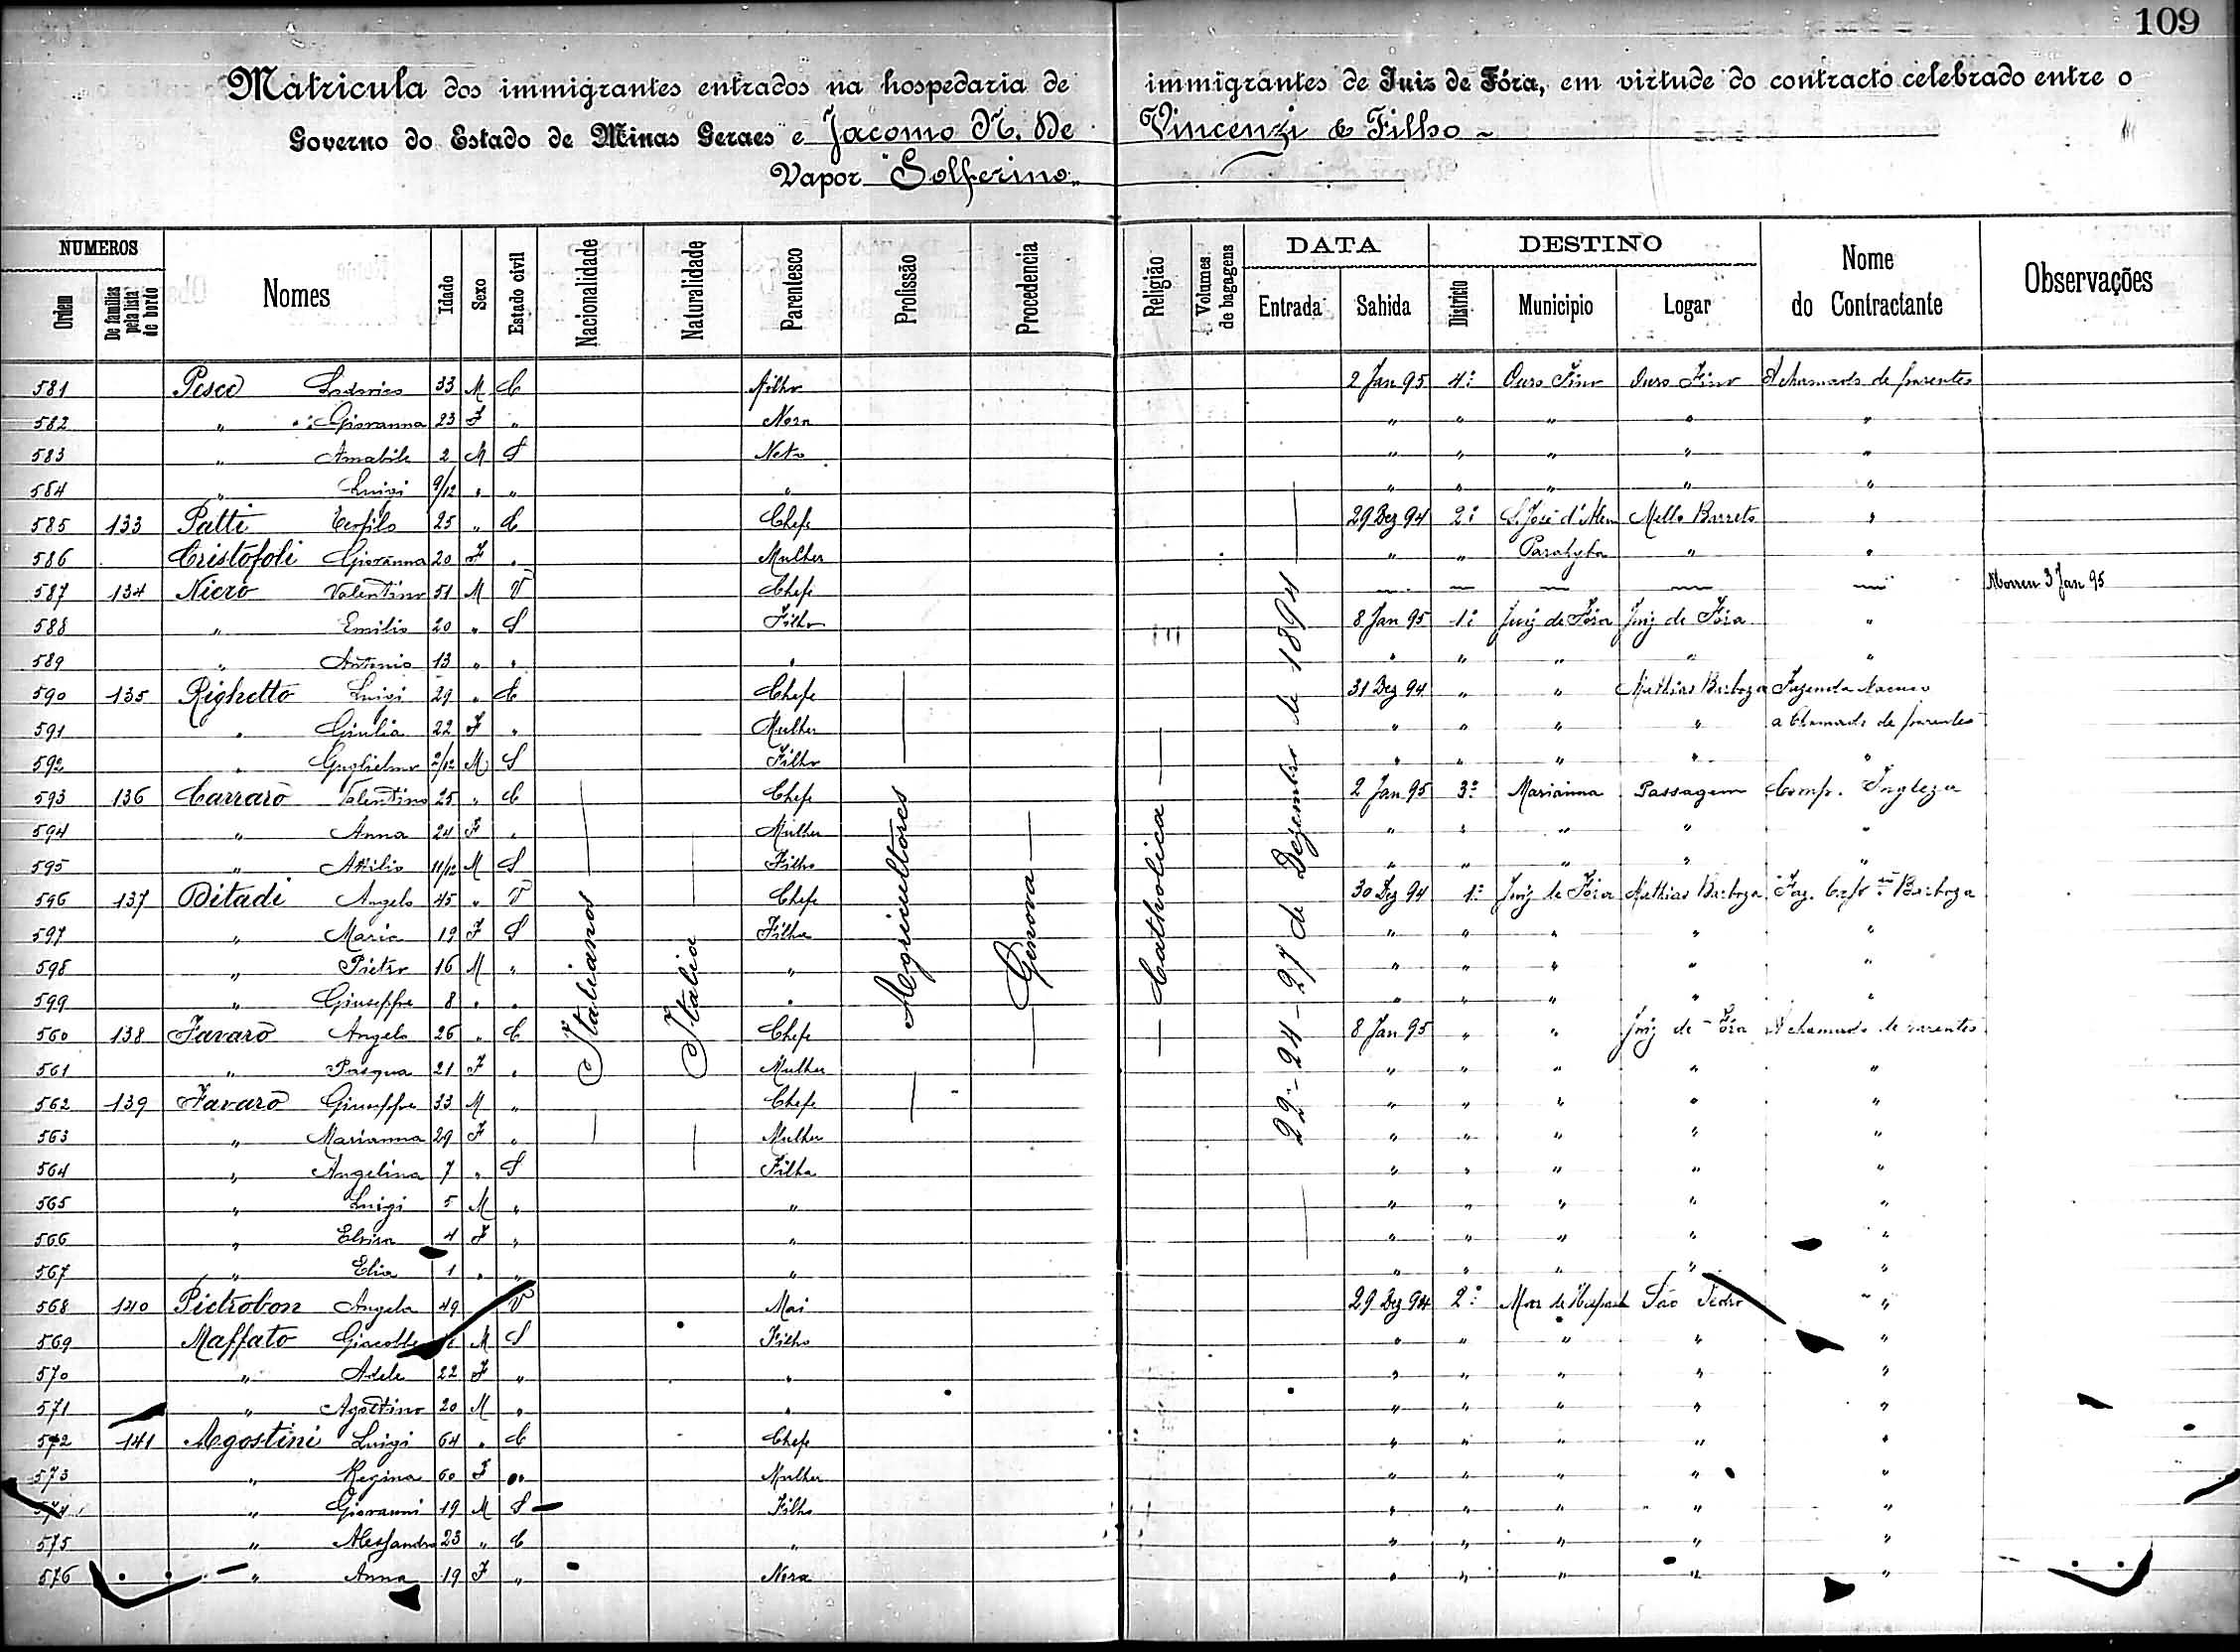 109
Matricula dos immigrantes entrados na hospedaria de immigrantes de Juiz de Fóra, em virtude do contracto celebrado entre o
Governo do Estado de Minas Geraes e Jacomo N. De Vincenzi & Filho
Vapor "Solferino"
NUMEROS DATA DESTINO
Ordem De familias pela lista de bordo Nomes Idade Sexo Estado civil Nacionalidade Naturalidade Parentesco Profissão Procedencia Religião Volumes de bagagens Entrada Sahida Districto Municipio Logar Nome do Contractante Observações
Italianos Italia Agricultores Genova Catholica 22-24-27 de Dezembro de 1894
581 Pesce Lodovico 33 M C Filho 2 Jan 95 4º Ouro Fino Ouro Fino A chamado de parentes
582 " Giovanna 23 F " Nora " " " " "
583 " Amabile 2 M S Neto " " " " "
584 " Luigi 9/12 " " " " " " " "
585 133 Patti Teofilo 25 " C Chefe 29 Dez 94 2º S. José d'Alem Mello Barreto "
586 Cristofoli Giovanna 20 F " Mulher " " Parahyba " "
587 134 Nicro Valentino 51 M V Chefe — — — — — Morreu 3 Jan 95
588 " Emilio 20 " S Filho 8 Jan 95 1º Juiz de Fóra Juiz de Fóra "
589 " Antonio 13 " " " " " " " "
590 135 Righetto Luigi 29 " C Chefe 31 Dez 94 " " Mathias Barboza Fazenda
591 " Giulia 22 F " Mulher " " " " a chamado de parentes
592 " Guglielmo 2/12 M S Filho " " " " "
593 136 Carraro Valentino 25 " C Chefe 2 Jan 95 3º Marianna Passagem Comp. Ingleza
594 " Anna 24 F " Mulher " " " " "
595 " Attilio 11/12 M S Filho " " " " "
596 137 Ditadi Angelo 45 " V Chefe 30 Dez 94 1º Juiz de Fóra Mathias Barboza Faz. Barboza
597 " Maria 19 F S Filha " " " " "
598 " Pietro 16 M " " " " " " "
599 " Giuseppe 8 " " " " " " " "
560 138 Favaro Angelo 26 " C Chefe 8 Jan 95 " " Juiz de Fóra A chamado de parentes
561 " Pasqua 21 F " Mulher " " " " "
562 139 Favaro Giuseppe 33 M " Chefe " " " " "
563 " Marianna 29 F " Mulher " " " " "
564 " Angelina 7 " S Filha " " " " "
565 " Luigi 5 M " " " " " " "
566 " Elvira 4 F " " " " " " "
567 " Elia 1 " " " " " " " "
568 140 Pietrobon Angela 49 V Mai 29 Dez 94 2º Mar de Hespanha São Pedro "
569 Maffato M S Filho " " " " "
570 " Adele 22 F " " " " " " "
571 " Agostino 20 M " " " " " " "
572 141 Agostini Luigi 64 " C Chefe " " " " "
573 " Regina 60 F " Mulher " " " " "
574 " Giovanni 19 M S Filho " " " " "
575 " Alessandro 23 " C " " " " " "
576 " Anna 19 F " Nora " " " " "